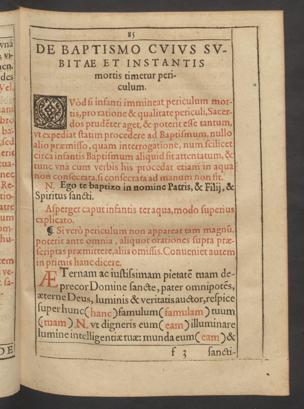 85
DE BAPTISMO CVIVS SV-
BITAE ET INSTANTIS
mortis timetur peri-
culum.
QVòd si infanti immineat periculum mor-
tis, pro ratione & qualitate periculi, Sacer-
dos prudēter aget, & poterit esse tantum,
vt expediat statim procedere ad Baptismum, nullo
alio præmisso, quam interrogatione, num scilicet
circa infantis Baptismum aliquid sit attentatum, &
tunc vna cum verbis his procedat etiam in aqua
non consecrata, si consecrata ad manum non sit.
N. Ego te baptizo in nomine Patris, & Filij, &
Spiritus sancti.
Asperget caput infantis ter aqua, modo superius
explicato.
¶ Si verò periculum non appareat tam magnū,
poterit ante omnia, aliquot orationes supra præ-
scriptas præmittere, alijs omissis. Conueniet autem
in primis hanc dicere.
ÆTernam ac iustissimam pietatē tuam de-
precor Domine sancte, pater omnipotēs,
æterne Deus, luminis & veritatis auctor, respice
super hunc (hanc) famulum (famulam) tuum
(tuam) N. vt digneris eum (eam) illuminare
lumine intelligentiæ tuæ: munda eum (eam) &
f 3 sancti-